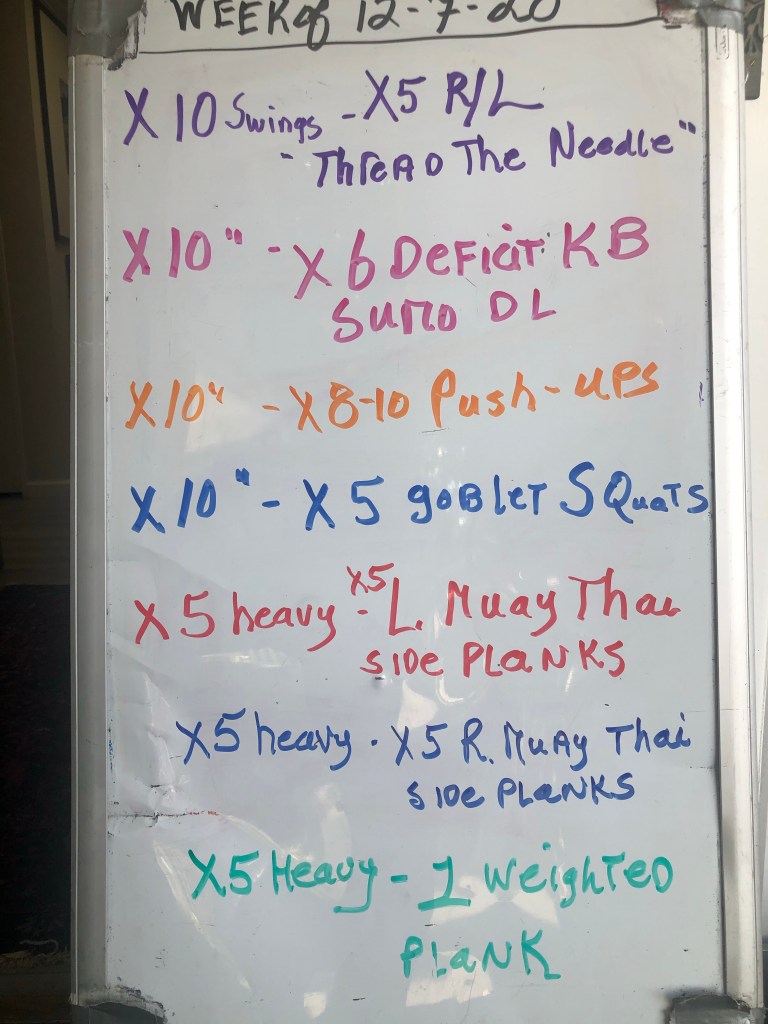 WEEK of 12-7-20
X 10 Swings - X5 R/L
- "Thread The Needle"
X 10 " - X 6 Deficit KB
Sumo DL
X 10 " - X 8-10 Push-ups
X 10 " - X 5 goblet Squats
X 5 heavy - x5 L. Muay Thai
Side Planks
X5 heavy - X5 R. Muay Thai
Side Planks
X5 Heavy - 1 Weighted
Plank